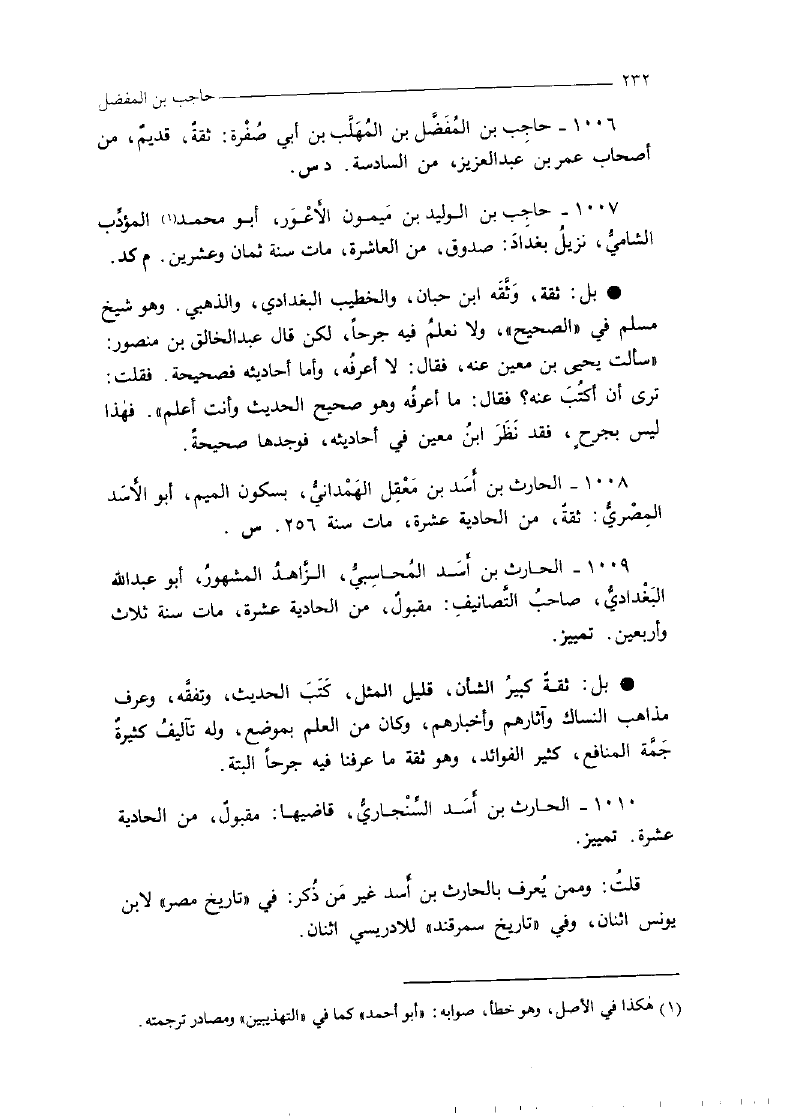 ٢٣٢ حاجب بن المفضل
١٠٠٦ ـ حاجِب بن المُفَضَّل بن المُهَلَّب بن أبي صُفْرة: ثقةٌ، قديمٌ، من
أصحاب عمر بن عبدالعزيز، من السادسة. د س.
١٠٠٧ ـ حاجِب بن الوليد بن مَيمون الأَعْوَر، أبو محمد(١) المؤدِّب
الشاميُّ، نزيلُ بغدادَ: صدوق، من العاشرة، مات سنة ثمان وعشرين. م كد.
● بل: ثقة، وَثَّقَه ابن حبان، والخطيب البغدادي، والذهبي. وهو شيخ
مسلم في «الصحيح»، ولا نعلمُ فيه جرحاً، لكن قال عبدالخالق بن منصور:
«سألت يحيى بن معين عنه، فقال: لا أعرفُه، وأما أحاديثه فصحيحة. فقلت:
ترى أن أكتُبَ عنه؟ فقال: ما أعرفُه وهو صحيح الحديث وأنت أعلم». فهٰذا
ليس بجرحٍ، فقد نَظَرَ ابنُ معين في أحاديثه، فوجدها صحيحةً.
١٠٠٨ ـ الحارث بن أَسَد بن مَعْقِل الهَمْدانيُّ، بسكون الميم، أبو الأَسَد
المِصْريُّ: ثقةٌ، من الحادية عشرة، مات سنة ٢٥٦. س .
١٠٠٩ ـ الحارث بن أَسَد المُحاسِبيُّ، الزَّاهدُ المشهورُ، أبو عبدالله
البَغْداديُّ، صاحبُ التَّصانيفِ: مقبولٌ، من الحادية عشرة، مات سنة ثلاث
وأربعين. تمييز.
● بل: ثقةٌ كبيرُ الشأن، قليل المثل، كَتَبَ الحديث، وتفقَّه، وعرف
مذاهب النساك وآثارهم وأخبارهم، وكان من العلم بموضع، وله تآليفُ كثيرةٌ
جَمَّة المنافع، كثير الفوائد، وهو ثقة ما عرفنا فيه جرحاً البتة.
١٠١٠ ـ الحارث بن أَسَد السِّنْجاريُّ، قاضيها: مقبولٌ، من الحادية
عشرة. تمييز.
قلتُ: وممن يُعرف بالحارث بن أَسد غير مَن ذُكر: في «تاريخ مصر» لابن
يونس اثنان، وفي «تاريخ سمرقند» للادريسي اثنان.
(١) هٰكذا في الأصل، وهو خطأ، صوابه: «أبو أحمد» كما في «التهذيبين» ومصادر ترجمته.